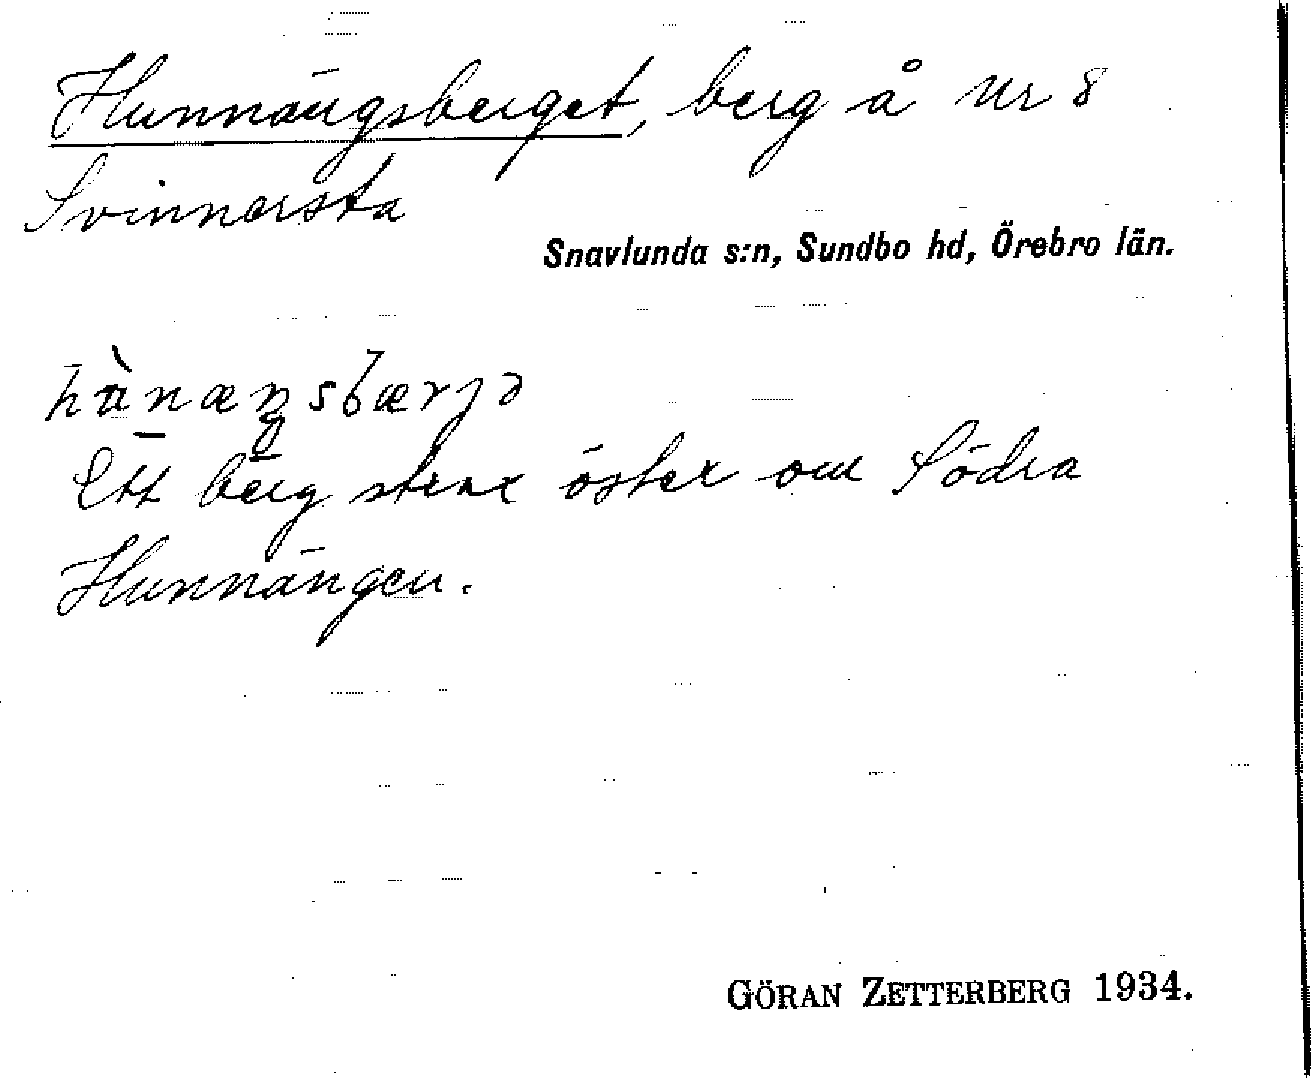 Hunnängsberget, berg å nr 8
Svinnersta
Snavlunda s:n, Sundbo hd, Örebro län.
hùnæŋsbærjə
Ett berg strax öster om Södra
Hunnängen.
GÖRAN ZETTERBERG 1934.